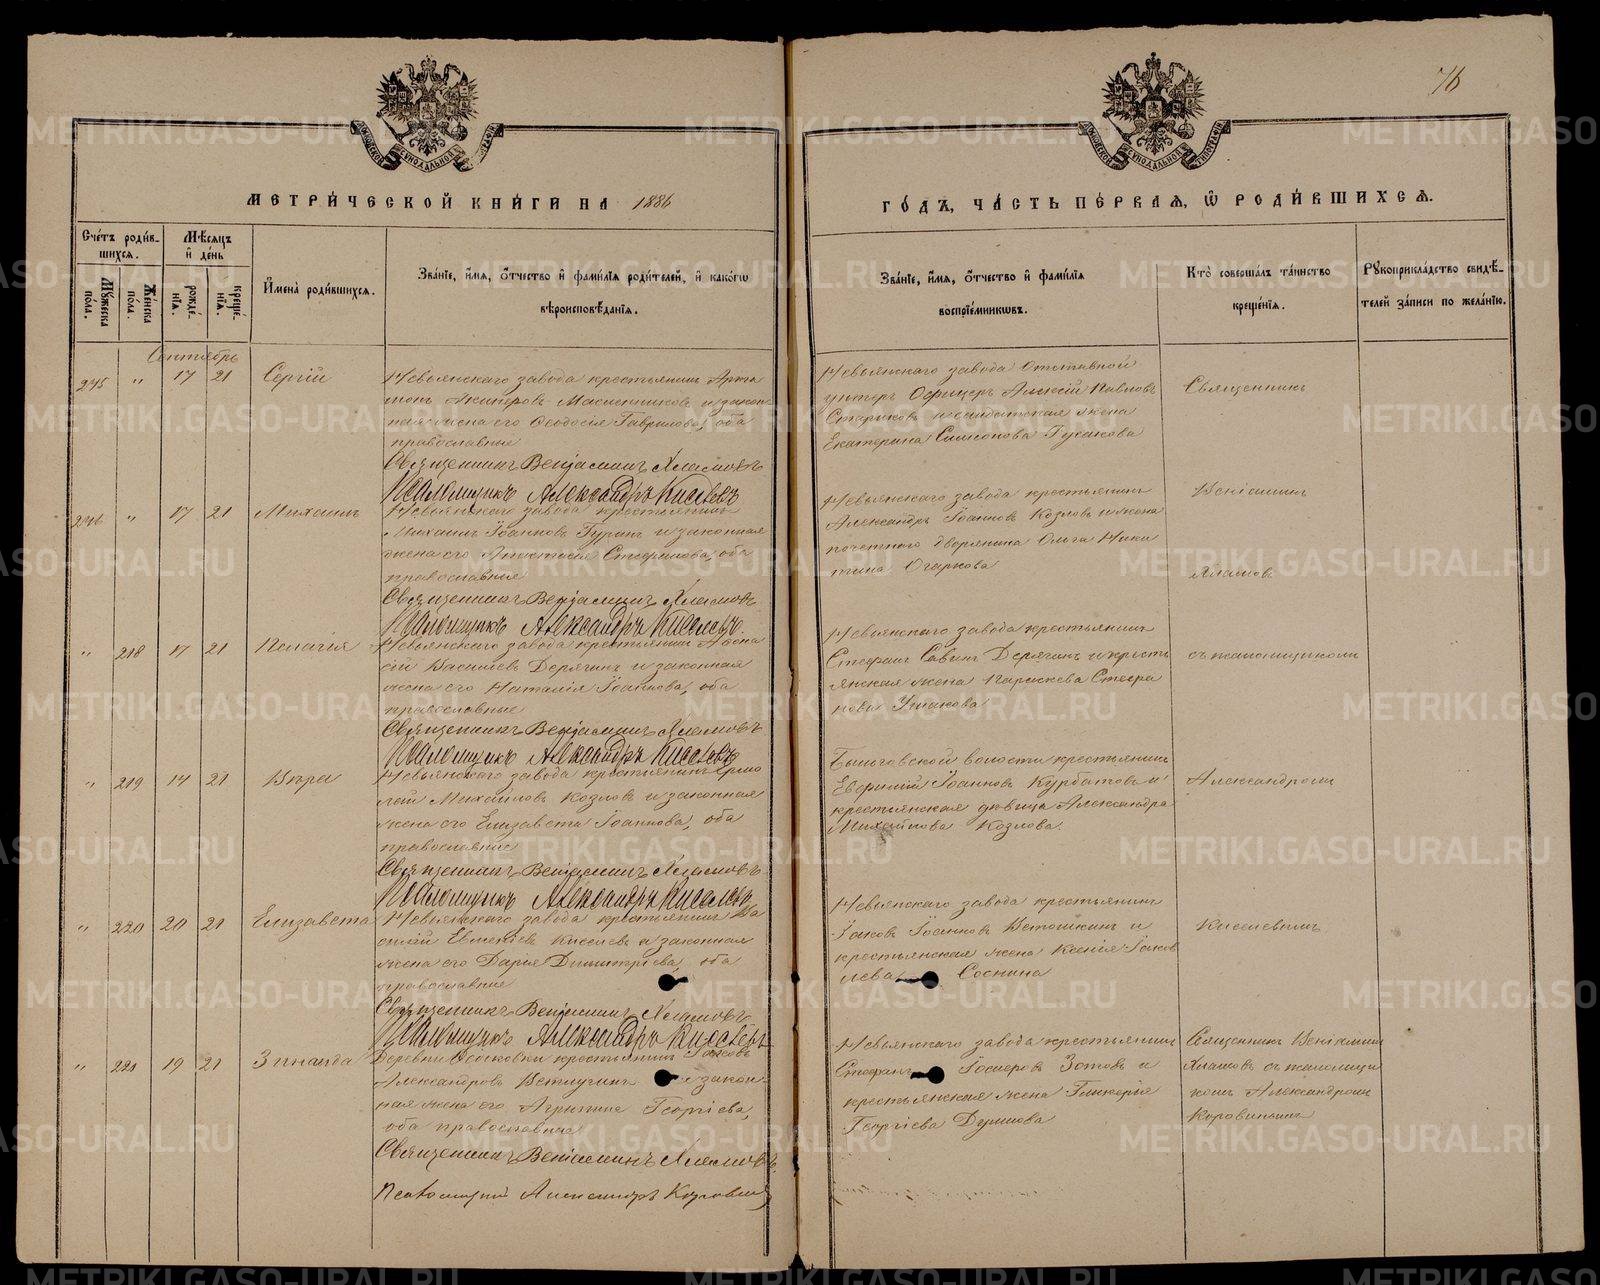 76
МЕТРИ́ЧЕСКОЙ КНИ́ГИ НА 1886
ГО́ДЪ, ЧА́СТЬ ПЕ́РВАЯ, Ѽ РОДИ́ВШИХСЯ.
Сче́тъ роди́в-
шихся.
Му́жеска
по́ла.
Же́нска
по́ла.
Мѣ́сяцъ
и҆ де́нь
рожде́-
нїя.
креще́-
нїя.
И҆мена̀ роди́вшихся.
Зва́нїе, и҆́мя, ѻ҆́тчество и҆ фами́лїя роди́телей, и҆ како́гѡ
вѣроисповѣ́данїя.
Зва́нїе, и҆́мя, ѻ҆́тчество и҆ фами́лїя
воспрїе́мникѡвъ.
Кто̀ соверша́лъ та́инство
креще́нїя.
Рꙋкоприкла́дство свидѣ́-
телей за́писи по жела́нїю.
Сентябрь
245 " 17 21 Сергій
Невьянскаго завода крестьянинъ Арта
монъ Масленниковъ и закон
ная жена его Ѳеодосія Гаврилова, оба
православные
Священникъ Веніаминъ Хламовъ
Псаломщикъ Александръ Киселевъ
Невьянскаго завода Отставной
унтеръ Офицеръ Алексій Павловъ
Стариковъ и солдатская жена
Екатерина Симеонова Гусакова
Священникъ
246 " 17 21 Михаилъ
Невьянскаго завода крестьянинъ
Михаилъ Іоанновъ и законная
жена его Анастасія Стефанова, оба
православные
Священникъ Веніаминъ Хламовъ
Псаломщикъ Александръ Киселевъ
Невьянскаго завода крестьянинъ
Александръ Іоанновъ Козловъ и жена
почетнаго дворянина Ольга Ники
тина Огаркова
Веніаминъ
Хламовъ
" 218 17 21 Пелагія
Невьянскаго завода крестьянинъ Аѳана
сій Васильевъ Дерягинъ и законная
жена его Наталія Іоаннова, оба
православные
Священникъ Веніаминъ Хламовъ
Псаломщикъ Александръ Киселевъ
Невьянскаго завода крестьянинъ
Стефанъ Савинъ Дерягинъ и кресть
янская жена Параскева Стефа
нова Ушакова
съ псаломщикомъ
" 219 14 21 Вѣра
Невьянскаго завода крестьянинъ Ермо
лай Михайловъ Козловъ и законная
жена его Елизавета Іоаннова, оба
православные
Священникъ Веніаминъ Хламовъ
Псаломщикъ Александръ Киселевъ
волости крестьянинъ
Евфимій Іоанновъ Курбатовъ и
крестьянская дѣвица Александра
Михайлова Козлова.
Александромъ
" 220 20 21 Елизавета
Невьянскаго завода крестьянинъ Ва
силій Киселевъ и законная
жена его Дарія Димитріева, оба
православные
Священникъ Веніаминъ Хламовъ
Псаломщикъ Александръ Киселевъ
Невьянскаго завода крестьянинъ
Іаковъ Іоанновъ Ветошкинъ и
крестьянская жена Ксенія Іаков
лева Соснина
Киселевымъ
" 221 19 21 Зинаида
Деревни крестьянинъ Іаковъ
Александровъ Ветлугинъ и закон-
ная жена его Агрипина Георгіева,
оба православные
Священникъ Веніаминъ Хламовъ
Псаломщикъ Александръ Коровинъ
Невьянскаго завода крестьянинъ
Стефанъ Зотовъ и
крестьянская жена Гликерія
Георгіева
Священникъ Веніаминъ
Хламовъ съ псаломщи
комъ Александромъ
Коровинымъ
METRIKI.GASO-URAL.RU